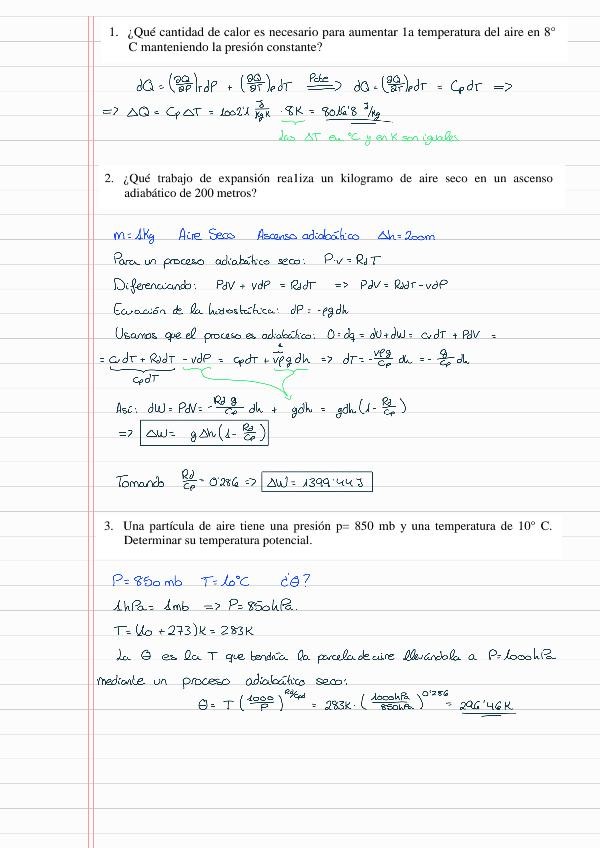 1. ¿Qué cantidad de calor es necesario para aumentar 1a temperatura del aire en 8°
C manteniendo la presión constante?
dQ = (∂Q/∂P)_T dP + (∂Q/∂T)_P dT ⟹ (P cte) dQ = (∂Q/∂T)_P dT = Cp dT =>
=> ΔQ = Cp ΔT = 1002'1 J/KgK · 8K = 8016'8 J/Kg
Los ΔT en °C y en K son iguales
2. ¿Qué trabajo de expansión rea1iza un kilogramo de aire seco en un ascenso
adiabático de 200 metros?
m = 1Kg Aire Seco Ascenso adiabático Δh = 200m
Para un proceso adiabático seco: P·v = Rd T
Diferenciando: PdV + vdP = RddT => PdV = RddT - vdP
Ecuación de la hidrostática: dP = -ρgdh
Usamos que el proceso es adiabático: 0 = dq = dU + dW = cvdT + PdV =
= cvdT + RddT - vdP = cpdT + vρgdh => dT = -vρg/cp dh = - g/cp dh
cpdT
1
Así: dW = PdV = - Rd g/cp dh + gdh = gdh (1 - Rd/cp)
=> ΔW = gΔh (1 - Rd/cp)
Tomando Rd/cp = 0'286 => ΔW = 1399'44 J
3. Una partícula de aire tiene una presión p= 850 mb y una temperatura de 10° C.
Determinar su temperatura potencial.
P = 850 mb T = 10°C ¿θ?
1hPa = 1mb => P = 850hPa.
T = (10 + 273)K = 283K
La θ es la T que tendría la parcela de aire llevándola a P = 1000hPa
mediante un proceso adiabático seco:
θ = T (1000/P)^(Rd/cpd) = 283K · (1000hPa/850hPa)^0'286 = 296'46K